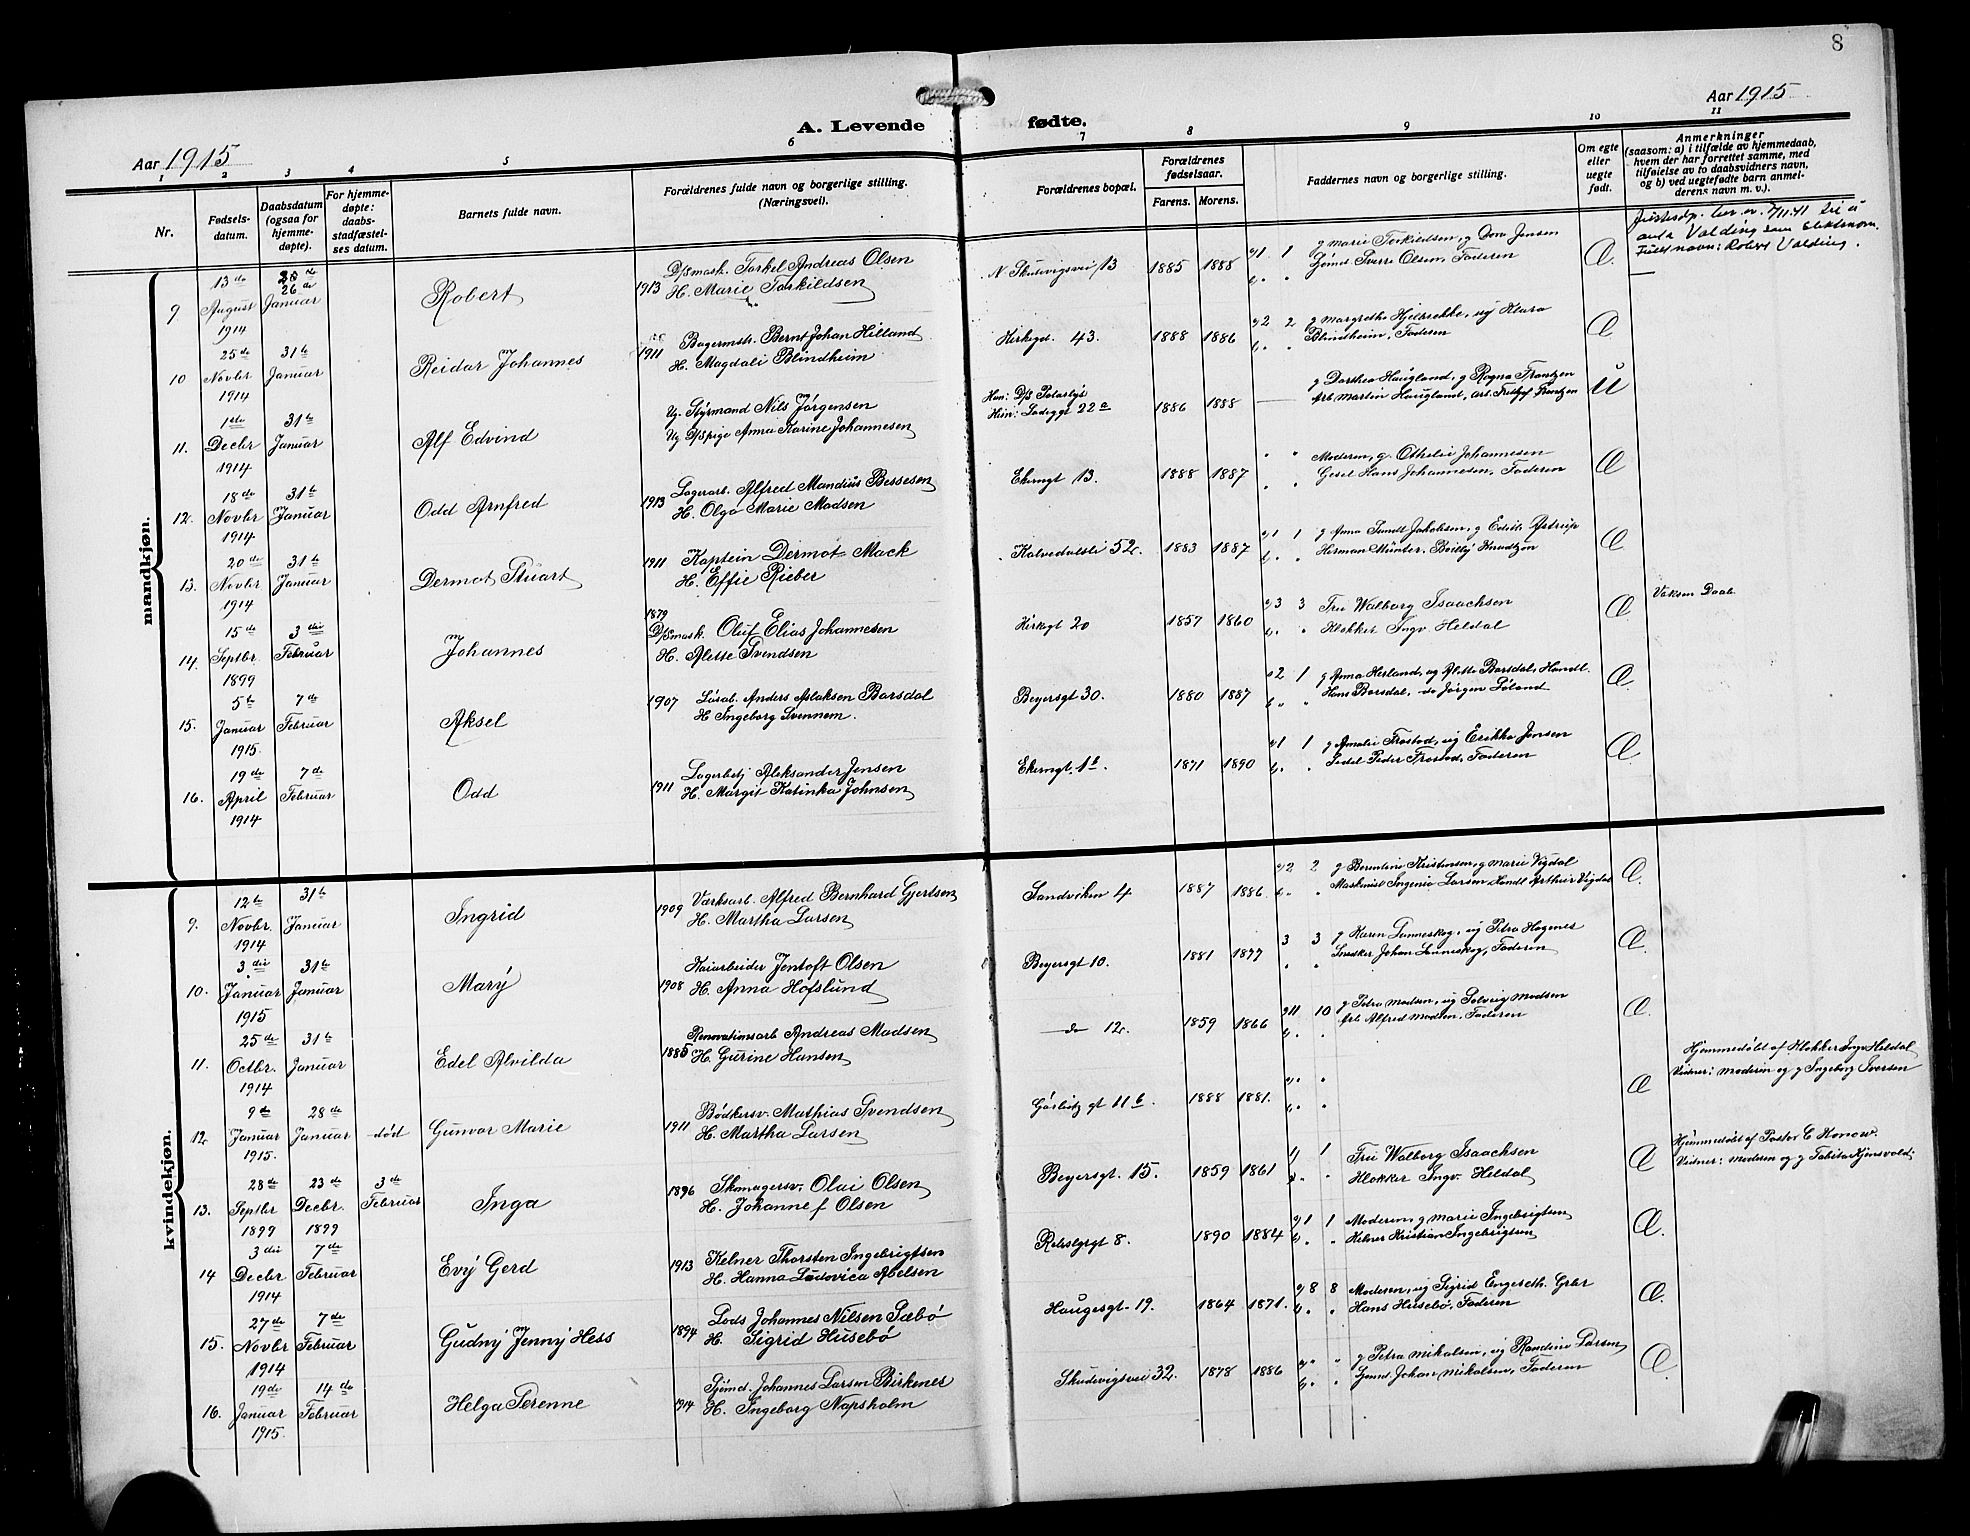 8
Aar 1915
Aar 1915
A. Levende fødte.
1 2 3 4 5 6 7 8 9 10 11
Nr.
Fødsels-
datum.
Daabsdatum
(ogsaa for
hjemme-
døpte).
For hjemme-
døpte:
daabs-
stadfæstel-
ses datum.
Barnets fulde navn.
Forældrenes fulde navn og borgerlige stilling.
(Næringsvei).
Forældrenes bopæl.
Forældrenes
fødselsaar.
Farens. Morens.
Faddernes navn og borgerlige stilling.
Om egte
eller
uegte
født.
Anmerkninger
(saasom: a) i tilfælde av hjemmedaab,
hvem der har forrettet samme, med
tilføielse av to daabsvidners navn,
og b) ved uegtefødte barn anmel-
derens navn m. v.).
mandkjøn.
9 13de August 1914 26de Januar Robert
1913 D/Smask. Torkel Andreas Olsen
H. Marie Torkildsen
N. Skudvigsvei 13 1885 1888 1 1
g Marie Torkildsen, g Dora Jensen
Sjømd. Sverre Olsen, Faderen
Æ.
anta Valding som slektsnavn.
Fullt navn: Robert Valding.
10 25de Novbr 1914 31te Januar Reidar Johannes
1911 Bagermstr. Bernt Johan Hilland
H. Magdali Blindheim
Kirkegt. 43. 1888 1886 2 2
Blindheim, Faderen
Æ
11. 1ste Decbr 1914 31te Januar Alf Edvind
Ug. Styrmand Nils Jørgensen
Ug. D/Spige Anna Karine Johannesen
1886 1888
g Dorthea Haugland, g Ragna Frantzen
Arb Martin Haugland, arb. Fridtjof Frantzen
U
12. 18de Novbr 1914 31te Januar Odd Arnfred
1913 Lagerarb. Alfred Mandius Bessesen
H. Olga Marie Madsen
Ekerngt 13. 1888 1887
Moderen, g. Othelie Johannesen
Gesel Hans Johannesen, Faderen
Æ
13. 20de Novbr 1914 31te Januar Dermot Stuart
1911 Kaptein Dermot Mack
H. Effie Rieber
Kalvedalsvei 52c. 1883 1887 1 1
g Anna Sundt Jakobsen, g Edith Astrup
Herman Münter, Bolly Knudtzon
Æ
14. 15de Septbr. 1899 3die Februar Johannes
1879
D/Smask. Oluf Elias Johannesen
H. Alette Svendsen
Kirkegt 20 1857 1860 3 3
Fru Walborg Isaachsen
Klokker Ingv. Heldal
Æ
Voksen Daab
15. 5te Januar 1915. 7de Februar Aksel
1907 Løsarb. Anders Aslaksen Borsdal
H Ingeborg Svennem.
Beyersgt 30. 1880 1887 2 1
g Anna Herland, ug Alette Borsdal, Handl.
Hans Borsdal, do Jørgen Søland
Æ.
16. 19de April 1914 7de Februar Odd
1911 Lagerbetj Aleksander Jensen
H. Margit Katinka Johnsen
Ekerngt. 1b. 1871 1890 1 1
g Amalie Frostad, ug Erikka Jensen
Peder Frostad, Faderen
Æ.
kvindekjøn.
9. 12te Novbr. 1914 31te Januar Ingrid
1909 Værksarb. Alfred Bernhard Gjertsen
H. Martha Larsen
Sandviken 4. 1887 1886. 2 2
g Berentine Kristensen, g Marie Vigdal
Maskinist Ingenio Larsen Handl Arthur Vigdal
Æ.
10. 3die Januar 1915 31te Januar Mary
1908 Kaiarbeider Jentoft Olsen
H. Anna Hofslund
Beyersgt 10. 1881 1877 3 3
g Karen Lonneskog, ug Petra Hagenes
Snedker Johan Lonneskog, Faderen
Æ
11. 25de Octbr. 1914 31te Januar Edel Alvilda
1885 Renovationsarb Andreas Madsen
H. Gurine Hansen
do 12c. 1859 1866 11 10
g Petra Madsen, ug Solveig Madsen
Arb Alfred Madsen, Faderen
Æ.
12 9de Januar 1915. 28de Januar død Gunvor Marie
1911 Bødkersv. Mathias Svendsen
H. Martha Larsen
Görbitz gt 11b. 1888 1881.
Æ
Hjemmedøbt af Klokker Ingv. Heldal
Vidner: Moderen og g Ingeborg Iversen
13. 28de Septbr 1899 23de Decbr. 1899 3de Februar Inga
1896 Skomagersv. Olai Olsen
H. Johanne f Olsen
Beyersgt. 15. 1859 1861 1
Fru Walborg Isaachsen
Klokker Ingv. Heldal
Æ
Hjemmedøbt af Pastor C Konow.
Vidner: Moderen og g Tabita Hjemsvold.
14 3die Decbr 1914 7de Februar Evy Gerd
1913 Kelner Thorsten Ingebrigtsen
H. Hanna Ludovica Abelsen
Rebslgrgt 8. 1890 1884 1 1
Moderen, g Marie Ingebrigtsen
Kelner Kristian Ingebrigtsen
Æ.
15. 27de Novbr 1914 7de Februar Gudny Jenny Hess
1894 Lods Johannes Nilsen Sæbø
H. Sigrid Husebø
Haugesgt. 19. 1864 1871. 8 8
Moderen, ug Sigrid Engeseth.
Hans Husebø, Faderen
Æ.
16. 19de Januar 1915. 14de Februar Helga Serenne
1914 Sjømd. Johannes Larsen Birkenes
H. Ingeborg Napsholm
Skudvigsvei 32. 1878 1886
g Petra Mikalsen, ug Randine Larsen
Sjømd. Johan Mikalsen, Faderen
Æ